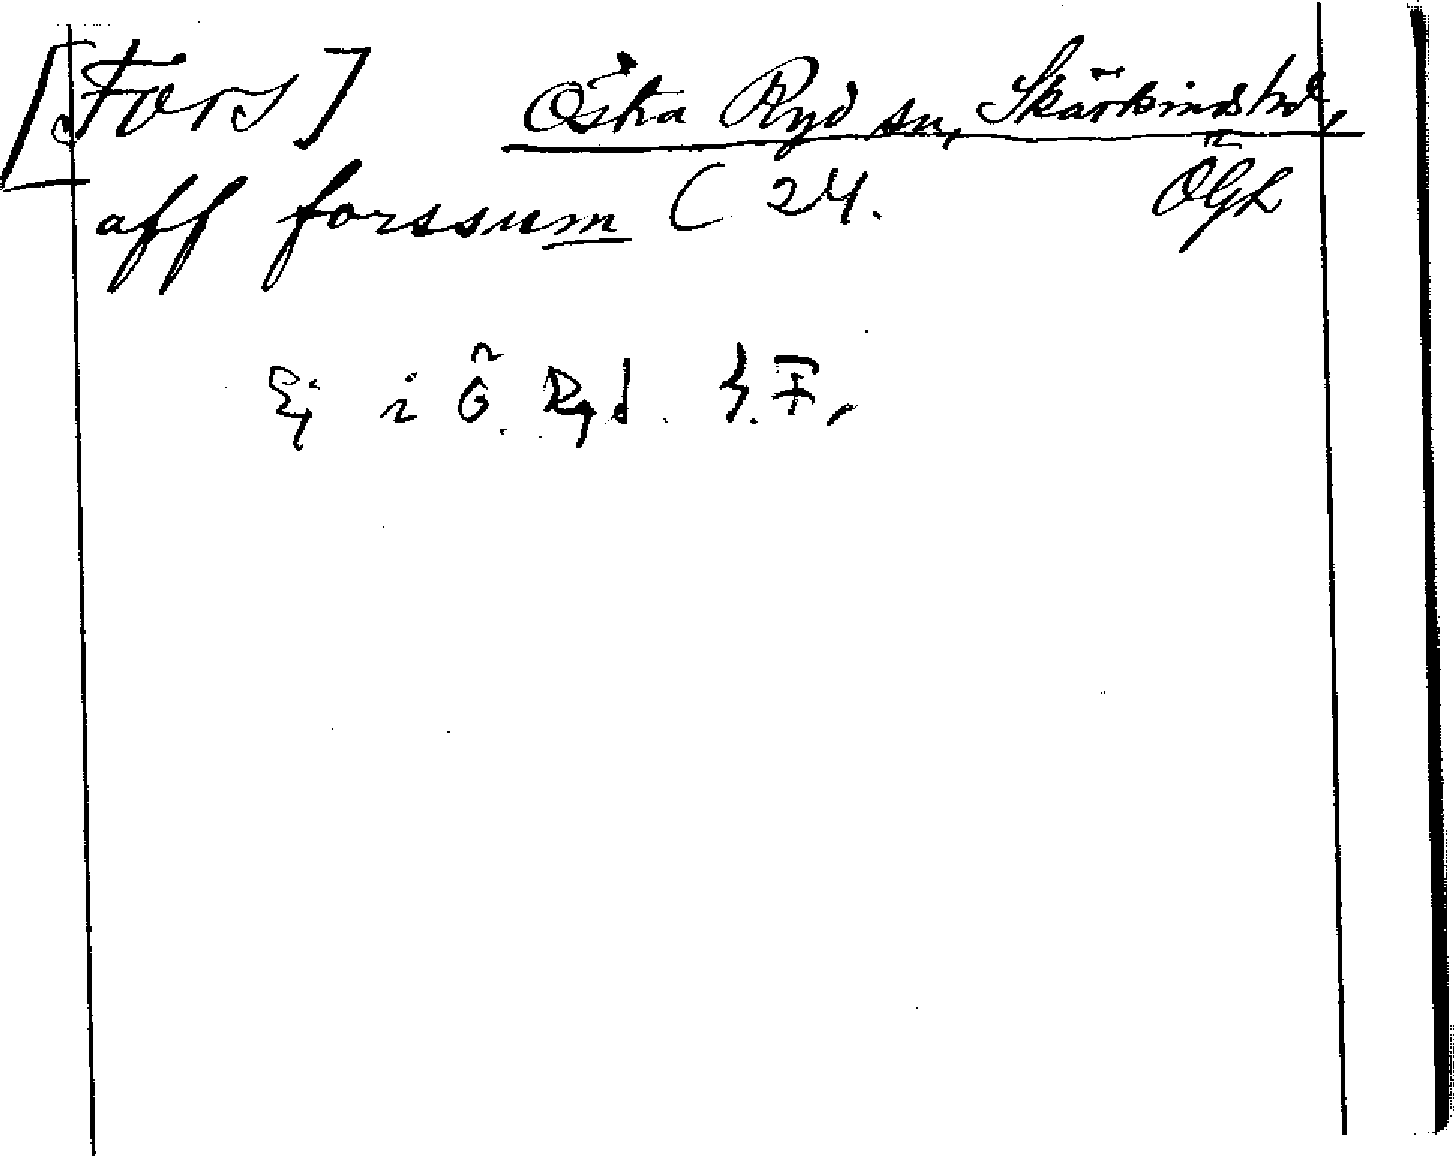 [Fors] Östra Ryd sn, Skärkinds hd,
ÖGL
aff forssum (24.
Ej i Ö. Ryd. F.